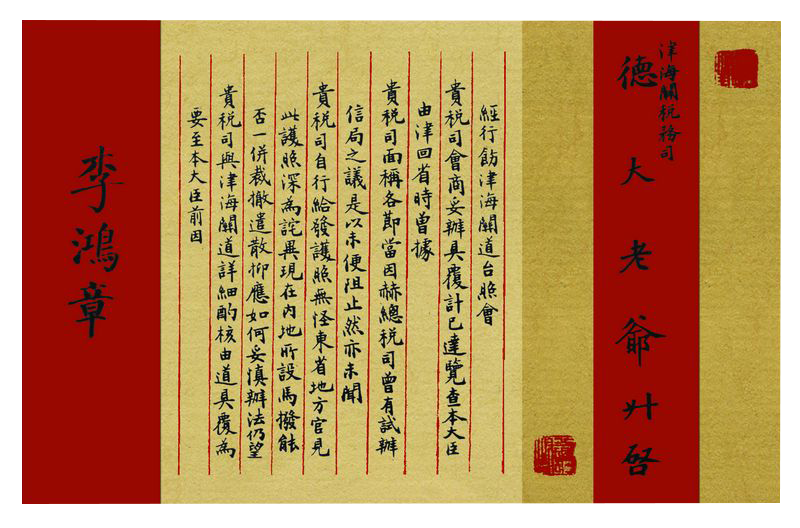 津海關稅務司
德大老爺升啓
經行飭津海關道台照會
貴稅司會商妥辦具覆計已達覽查本大臣
由津回省時曾據
貴稅司面稱各節當因赫總稅司曾有試辦
信局之議是以未便阻止然亦未聞
貴稅司自行給發護照無怪東省地方官見
此護照深為詫異現在內地所設馬撥能
否一併裁撤遣散抑應如何妥慎辦法仍望
貴稅司與津海關道詳細酌核由道具覆為
要至本大臣前因
李鴻章